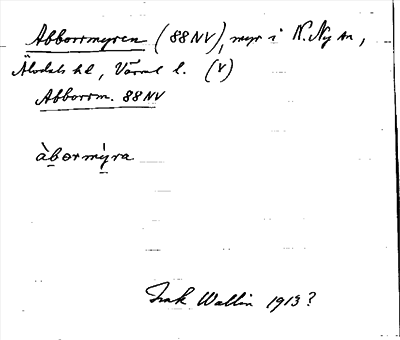 Abborrmyren (88NV), myr i N. Ny sn,
Älvdals hd, Värml l. (V)
Abborrm. 88NV
àbormỳra
Isak Wallin 1913?